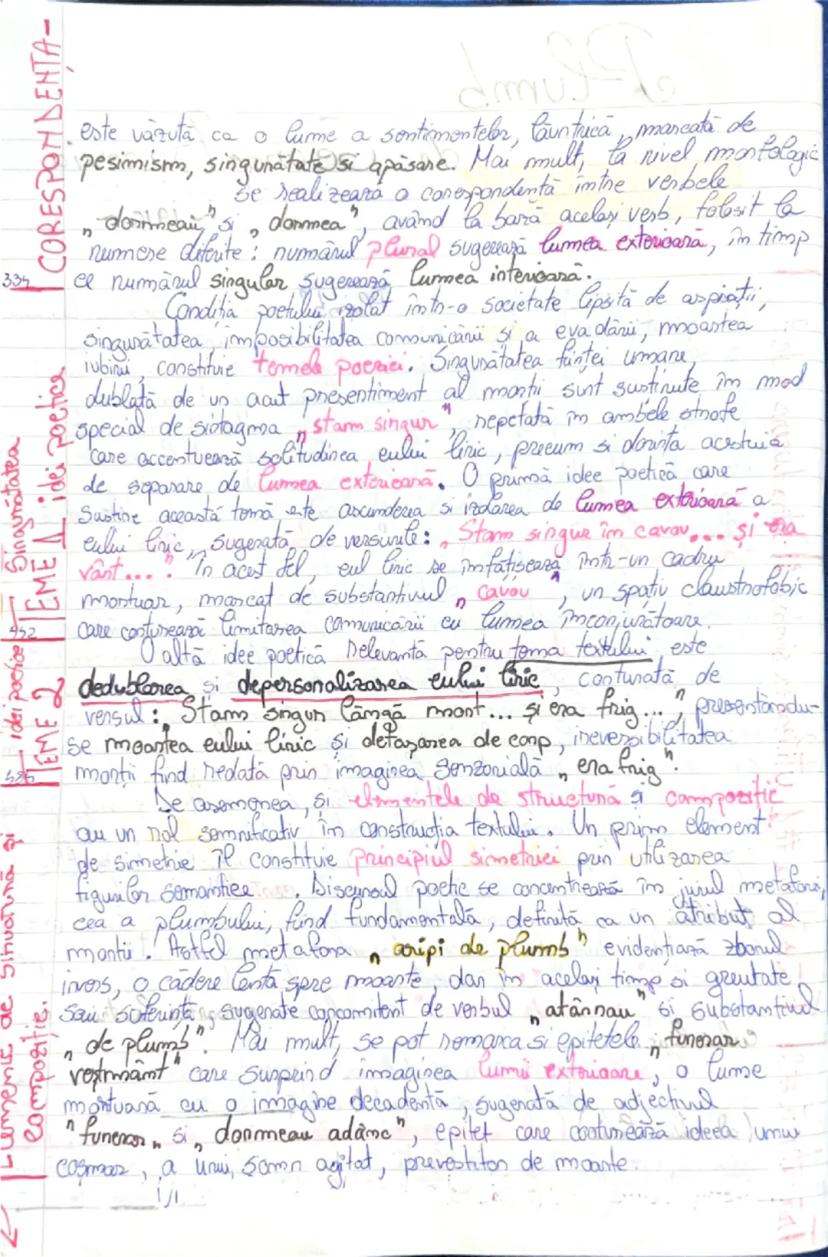 Plumb
este văzută ca o lume a sentimentelor, lăuntrică, marcată de
pesimism, singurătate si apăsare. Mai mult, la nivel morfologic
se realizează o corespondentă între verbele
„dormeau" si „dormea", având la bază același verb, folosit la
numere diferite: numărul plural sugerează lumea exterioară, în timp
ce numărul singular sugerează lumea interioară.
Condiția poetului izolat într-o societate lipsită de aspirații,
singurătatea, imposibilitatea comunicării si a evadării, moartea
iubirii, constituie temele poeziei. Singurătatea ființei umane,
dublată de un acut presentiment al morții sunt sustinute în mod
special de sintagma „stam singur", repetată în ambele strofe
care accentuează solitudinea eului liric, precum si dorința acestuia
de separare de lumea exterioară. O primă idee poetică care
sustine această temă este ascunderea si izolarea de lumea exterioară a
eului liric, sugerată de versurile: „Stam singur în cavou... și era
vânt...". În acest fel, eul liric se înfățisează într-un cadru
mortuar, marcat de substantivul „cavou", un spațiu claustrofobic
care conturează limitarea comunicării cu lumea înconjurătoare.
O altă idee poetică relevantă pentru tema textului este
dedublarea si depersonalizarea eului liric, conturată de
versul: „Stam singur lângă mort... și era frig...", prezentându-
se moartea eului liric și detașarea de corp, ireversibilitatea
morții fiind redată prin imaginea senzorială „era frig".
De asemenea, și elementele de structură și compoziție
au un rol semnificativ în construcția textului. Un prim element
de simetrie îl constituie principiul simetriei prin utilizarea
figurilor semantice. Discursul poetic se concentrează în jurul metaforei,
cea a plumbului, fiind fundamentală, definită ca un atribut al
morții. Astfel metafora „aripi de plumb" evidențiază zborul
invers, o cădere lentă spre moarte, dar în același timp si greutate
sau suferință sugerate concomitent de verbul „atârnau" si substantivul
„de plumb". Mai mult, se pot remarca si epitetele „funerar
vestmânt" care surprind imaginea lumii exterioare, o lume
mortuară cu o imagine decadentă, sugerată de adjectivul
"funerar„ si „dormeau adânc", epitet care conturează ideea unui
coșmar, a unui somn agitat, prevestitor de moarte.
CORESPONDENȚA-
334
TEME 1 idei poetice
Singurătatea
452
TEME 2
idei poetice
Elemente de structură și
compoziție.